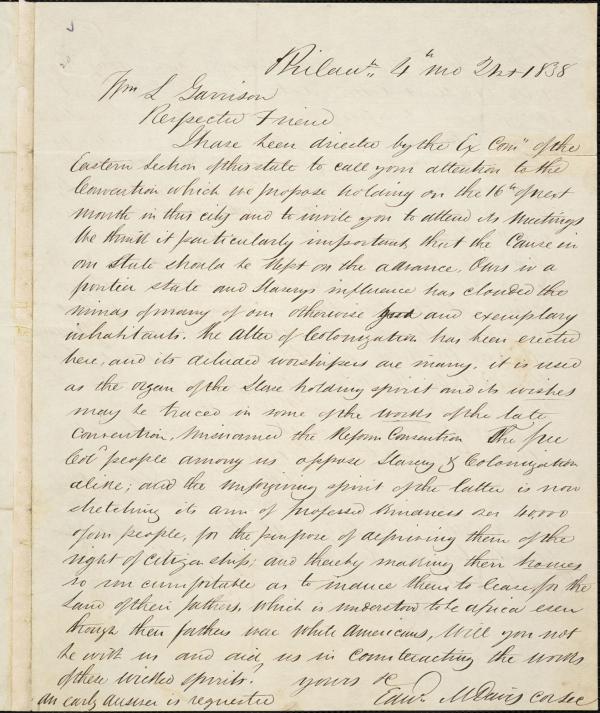 Philada., 4th mo 21st 1838
Wm L Garrison
Respected Friend
I have been directed by the Ex Comn of the
Eastern Section of this state to call your attention to the
Convention which we propose holding on the 16th of next
month in this city and to invite you to attend its meetings
We think it particularly important, that the Cause in
our State should be kept on the advance. Ours is a
frontier state and Slavery's influence has clouded the
minds of many of our otherwise good and exemplary
inhabitants. The Alter of Colonization has been erected
here, and its deluded worshipers are many. it is used
as the organ of the Slave holding spirit and its wishes
may be traced in some of the works of the late
Convention, misnamed the Reform Convention The free
Cold people among us oppose Slavery & Colonization
alike; and the unforgiving spirit of the latter is now
stretching its arm of professed kindness over 40,000
of our people, for the purpose of depriving them of the
right of citizenship; and thereby making their homes
so uncomfortable as to induce them to leave for the
Land of their fathers, which is understood to be Africa even
though their fathers were White Americans, Will you not
be with us and aid us in counteracting the works
of these wicked spirits. yours &c
Edwd. M Davis cor sec
An early answer is requested